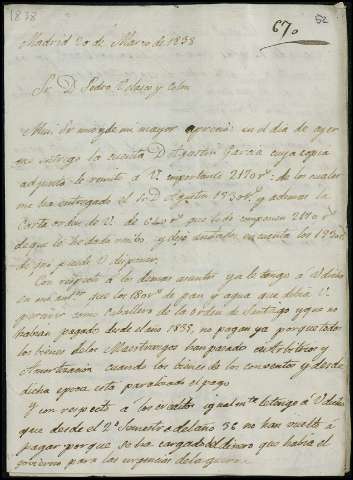 1838
67.
52
Madrid 20 de Marzo de 1838
Sr. D. Pedro Velasco y Colon
Mui Sr. mio y de mi mayor aprecio: en el dia de ayer
me entrego la cuenta D. Agustin Garcia cuya copia
adjunta le remito a V. importante 2170 rs.: de los cuales
me ha entregado el Sr. D. Agustin 1530 rs. y ademas la
Carta orden de V. de 640 rs. que todo componen 2170 rs.
de que le he dado recibo y dejo anotados en cuenta los 1530 rs.
de que puede V. disponer.
Con respecto a los demas asuntos ya le tengo a V. dicho
en mi ant.r que los 180 rs. de pan y agua que debia V.
percivir como Caballero de la orden de Santiago y que no
habian pagado desde el año 1835, no pagan ya porque todos
los bienes de los Maestrazgos han pasado a Arbitrios y
Amortizacion cuando los bienes de los conventos y desde
dicha epoca está paralizado el pago
Y con respecto a los creditos igualm.te le tengo a V. dicho
que desde el 2.º Semestre del año 36 no han vuelto á
pagar porque se ha cargado del dinero que habia el
govierno para las urgencias de la guerra